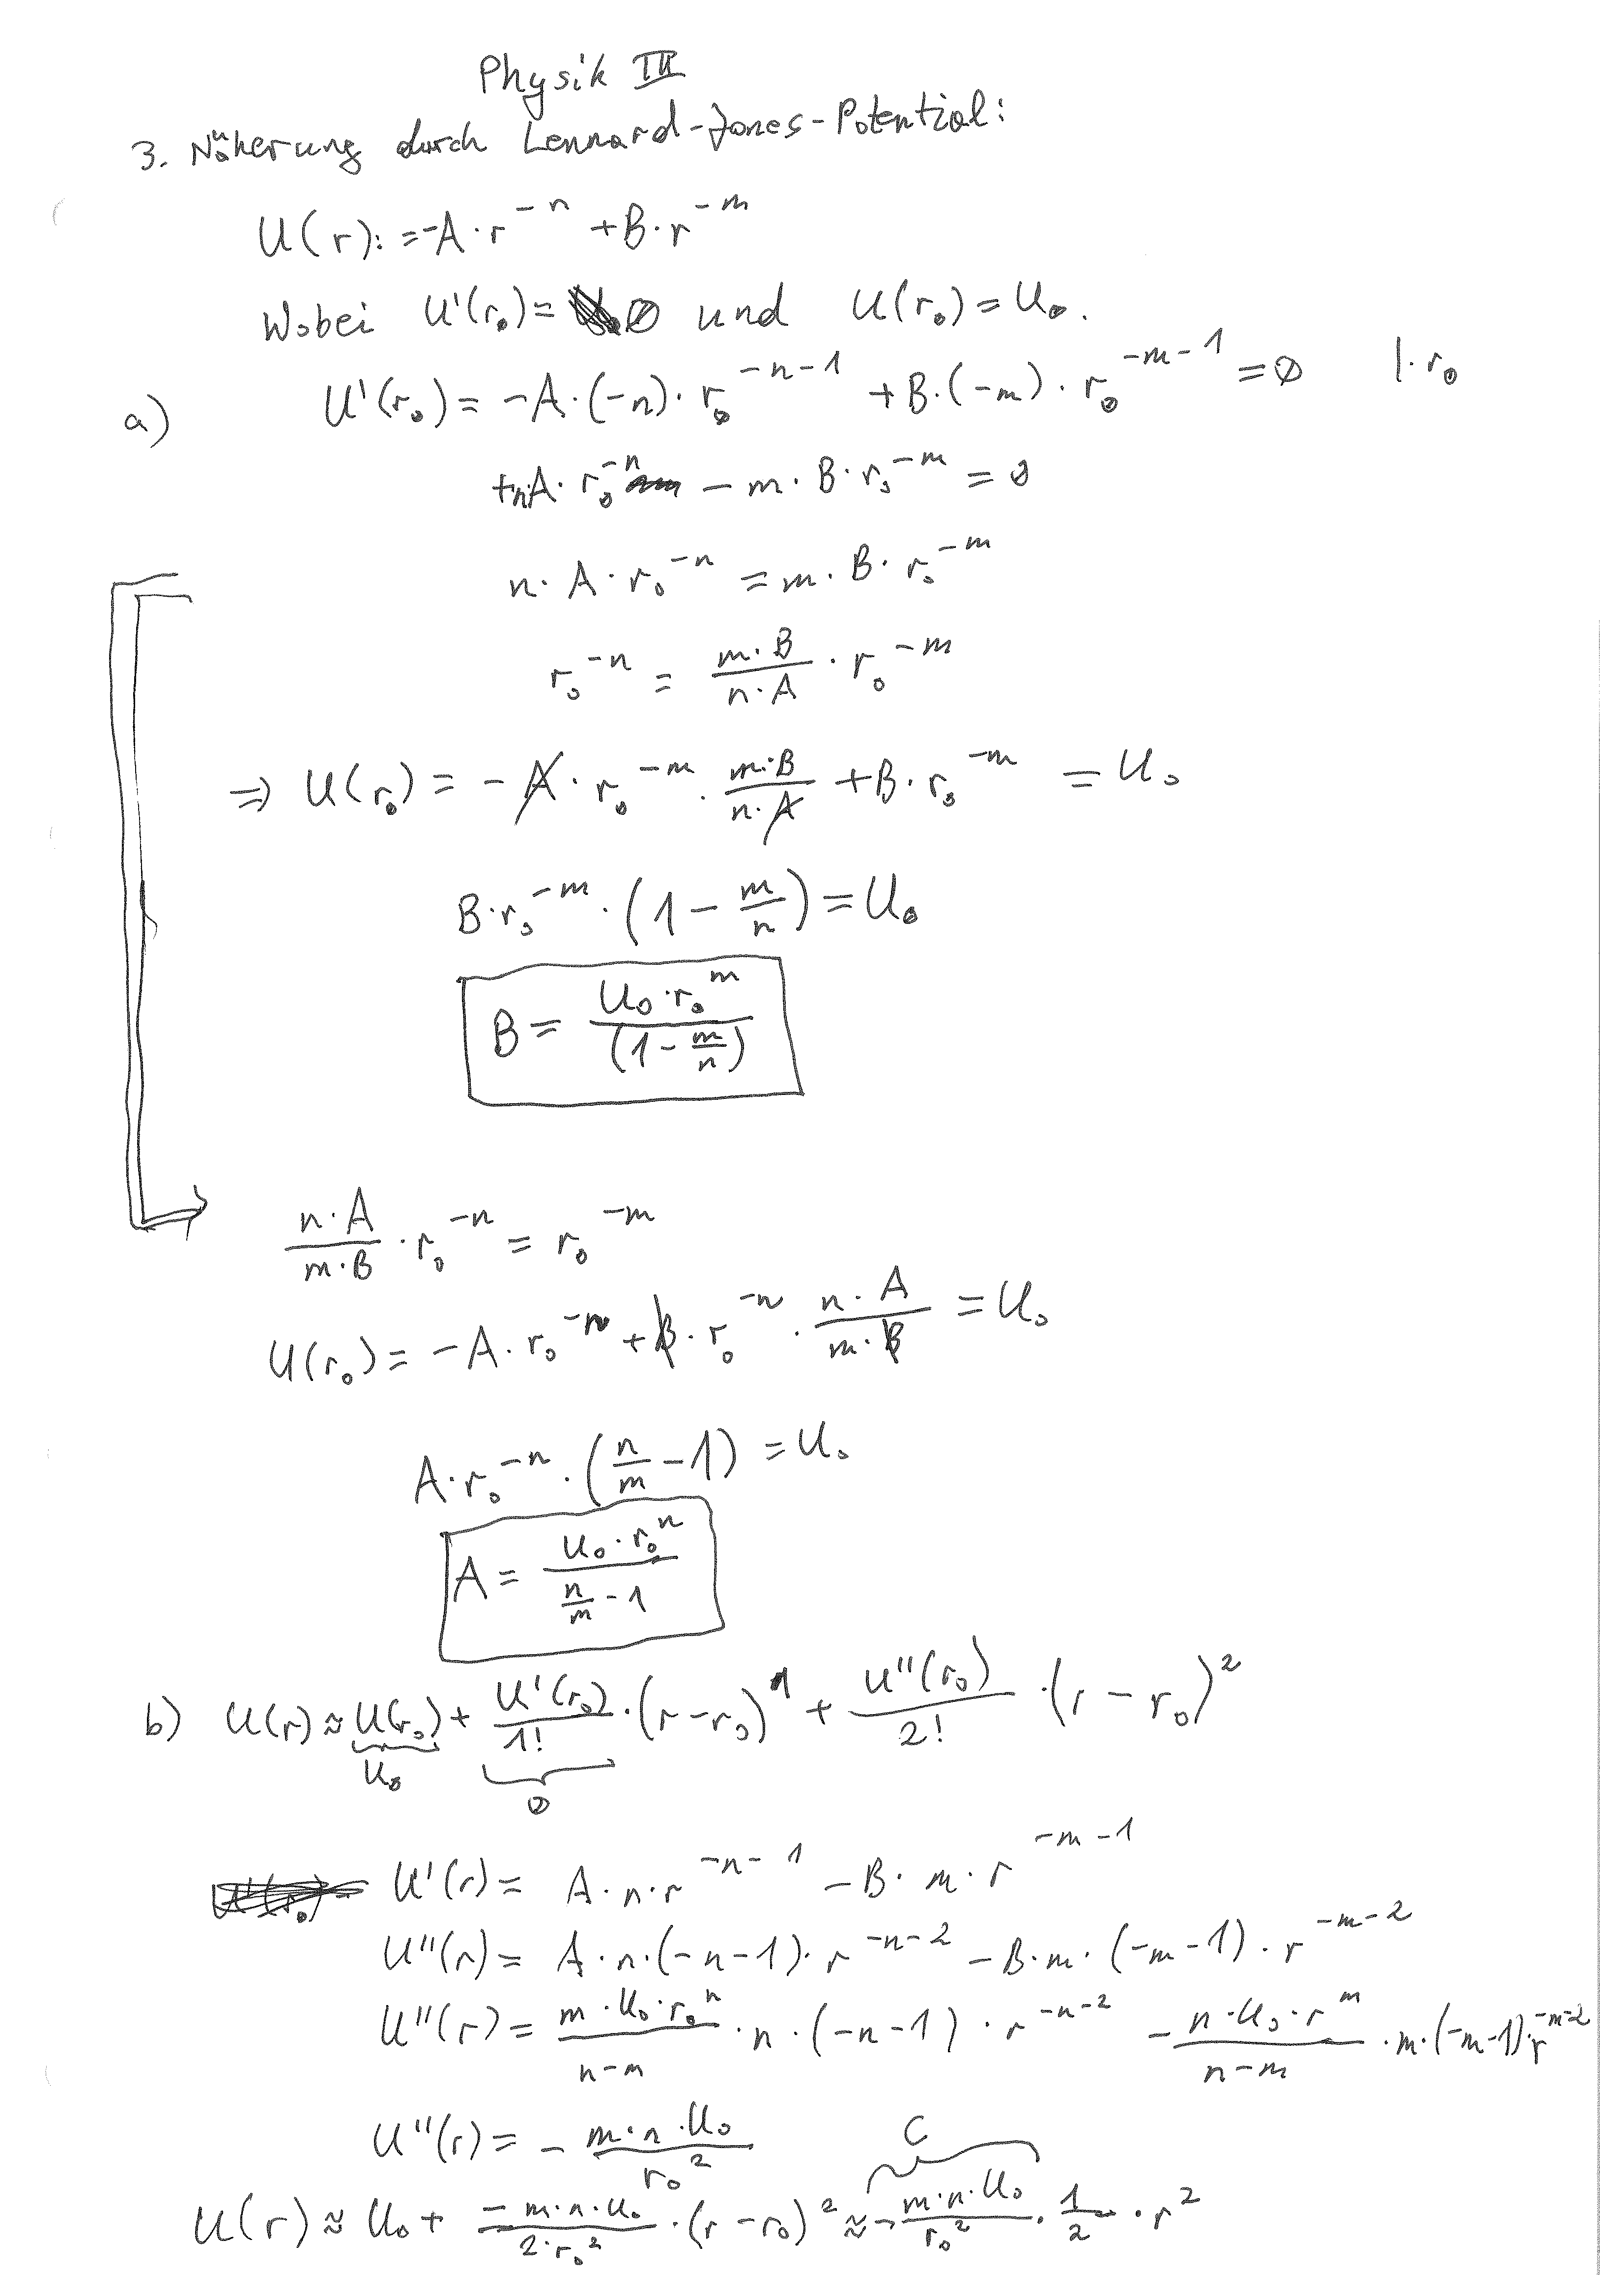 Physik III
3. Näherung durch Lennard-Jones-Potential:
U(r) := -A · r^{-n} + B · r^{-m}
Wobei U'(r₀) = 0 und U(r₀) = U₀.
a) U'(r₀) = -A · (-n) · r₀^{-n-1} + B · (-m) · r₀^{-m-1} = 0 | · r₀
+nA · r₀^{-n} - m · B · r₀^{-m} = 0
n · A · r₀^{-n} = m · B · r₀^{-m}
r₀^{-n} = \frac{m · B}{n · A} · r₀^{-m}
⇒ U(r₀) = -A · r₀^{-m} · \frac{m · B}{n · A} + B · r₀^{-m} = U₀
B · r₀^{-m} · (1 - \frac{m}{n}) = U₀
B = \frac{U₀ · r₀^{m}}{(1 - \frac{m}{n})}
\frac{n · A}{m · B} · r₀^{-n} = r₀^{-m}
U(r₀) = -A · r₀^{-n} + B · r₀^{-n} · \frac{n · A}{m · B} = U₀
A · r₀^{-n} · (\frac{n}{m} - 1) = U₀
A = \frac{U₀ · r₀^{n}}{\frac{n}{m} - 1}
b) U(r) ≈ U(r₀) + \frac{U'(r₀)}{1!} · (r - r₀)^1 + \frac{U''(r₀)}{2!} · (r - r₀)^2
U₀ 0
U'(r) = A · n · r^{-n-1} - B · m · r^{-m-1}
U''(r) = A · n · (-n-1) · r^{-n-2} - B · m · (-m-1) · r^{-m-2}
U''(r) = \frac{m · U₀ · r₀^{n}}{n-m} · n · (-n-1) · r^{-n-2} - \frac{n · U₀ · r^{m}}{n-m} · m · (-m-1) · r^{-m-2}
U''(r) = - \frac{m · n · U₀}{r₀^2}
C
U(r) ≈ U₀ + \frac{-m · n · U₀}{2 · r₀^2} · (r - r₀)^2 ≈ - \frac{m · n · U₀}{r₀^2} · \frac{1}{2} · r^2